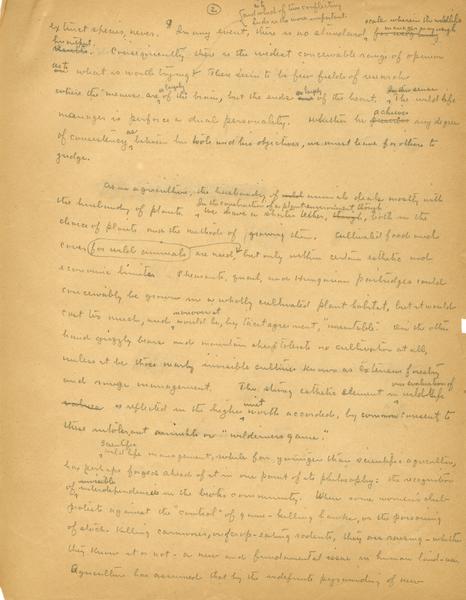 2
judge which of two conflicting
ends is the more important
extinct species, never. In any event, there is no standard, scale wherein the wildlife
manager may weigh
his hits. Consequently there is the widest conceivable range of opinion
as to what is worth trying. There seem to be few fields of research
where the means are so largely of the brain, but the ends so largely of the heart. In this sense, the wild life
manager is perforce a dual personality. Whether he achieves any degree
of consistency as between his tools and his objectives, we must leave for others to
judge.
As in agriculture, the husbandry of wild animals deals mostly with
the husbandry of plants. In the construction of a plant environment, though, we have a shorter tether, both in the
choice of plants and the methods of growing them. Cultivated food and
cover for wild animals are used, but only within certain esthetic and
economic limits. Pheasants, quail, and Hungarian partridges could
conceivably be grown in a wholly cultivated plant habitat, but it would
cost too much, and moreover would be, by tacit agreement, "unsuitable". On the other
hand grizzly bears and mountain sheep tolerate no cultivation at all,
unless it be those nearly invisible cultures known as extensive forestry
and range management. The strong esthetic element in our evaluation of wildlife
is reflected in the higher unit worth accorded, by common consent, to
these intolerant animals or "wilderness game."
Scientific wild life management, while far younger than scientific agriculture,
has perhaps forged ahead of it in one point of its philosophy: the recognition
of invisible interdependence in the biotic community. When some women's club
protests against the "control" of game-killing hawks, or the poisoning
of stock killing carnivores, or of crop-eating rodents, they are raising - whether
they know it or not - a new and fundamental issue in human land-use.
Agriculture has assumed that by the indefinite pyramiding of new